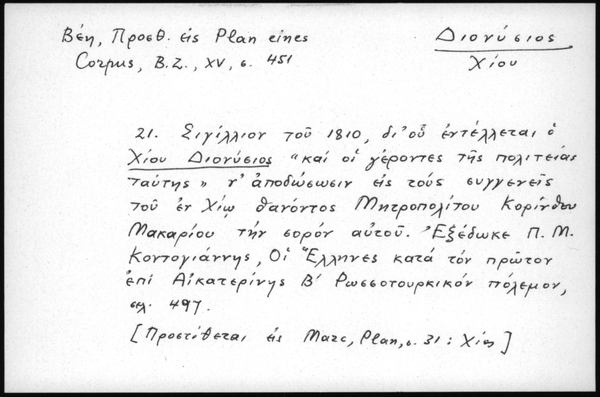 Βέη, Προσθ. εἰς Plan eines
Corpus, B.Z., XV, σ. 451
Διονύσιος
Χίου
21. Σιγίλλιον τοῦ 1810, δι' οὗ ἐντέλλεται ὁ
Χίου Διονύσιος "καὶ οἱ γέροντες τῆς πολιτείας
ταύτης" ν' ἀποδώσωσιν εἰς τοὺς συγγενεῖς
τοῦ ἐν Χίῳ θανόντος Μητροπολίτου Κορίνθου
Μακαρίου τὴν σορόν αὐτοῦ. Ἐξέδωκε Π. Μ.
Κοντογιάννης, Οἱ Ἕλληνες κατά τόν πρῶτον
ἐπί Αἰκατερίνης Β' Ρωσσοτουρκικόν πόλεμον,
σελ. 497.
[Προστίθεται εἰς Marc, Plan, σ. 31 : Χίος]